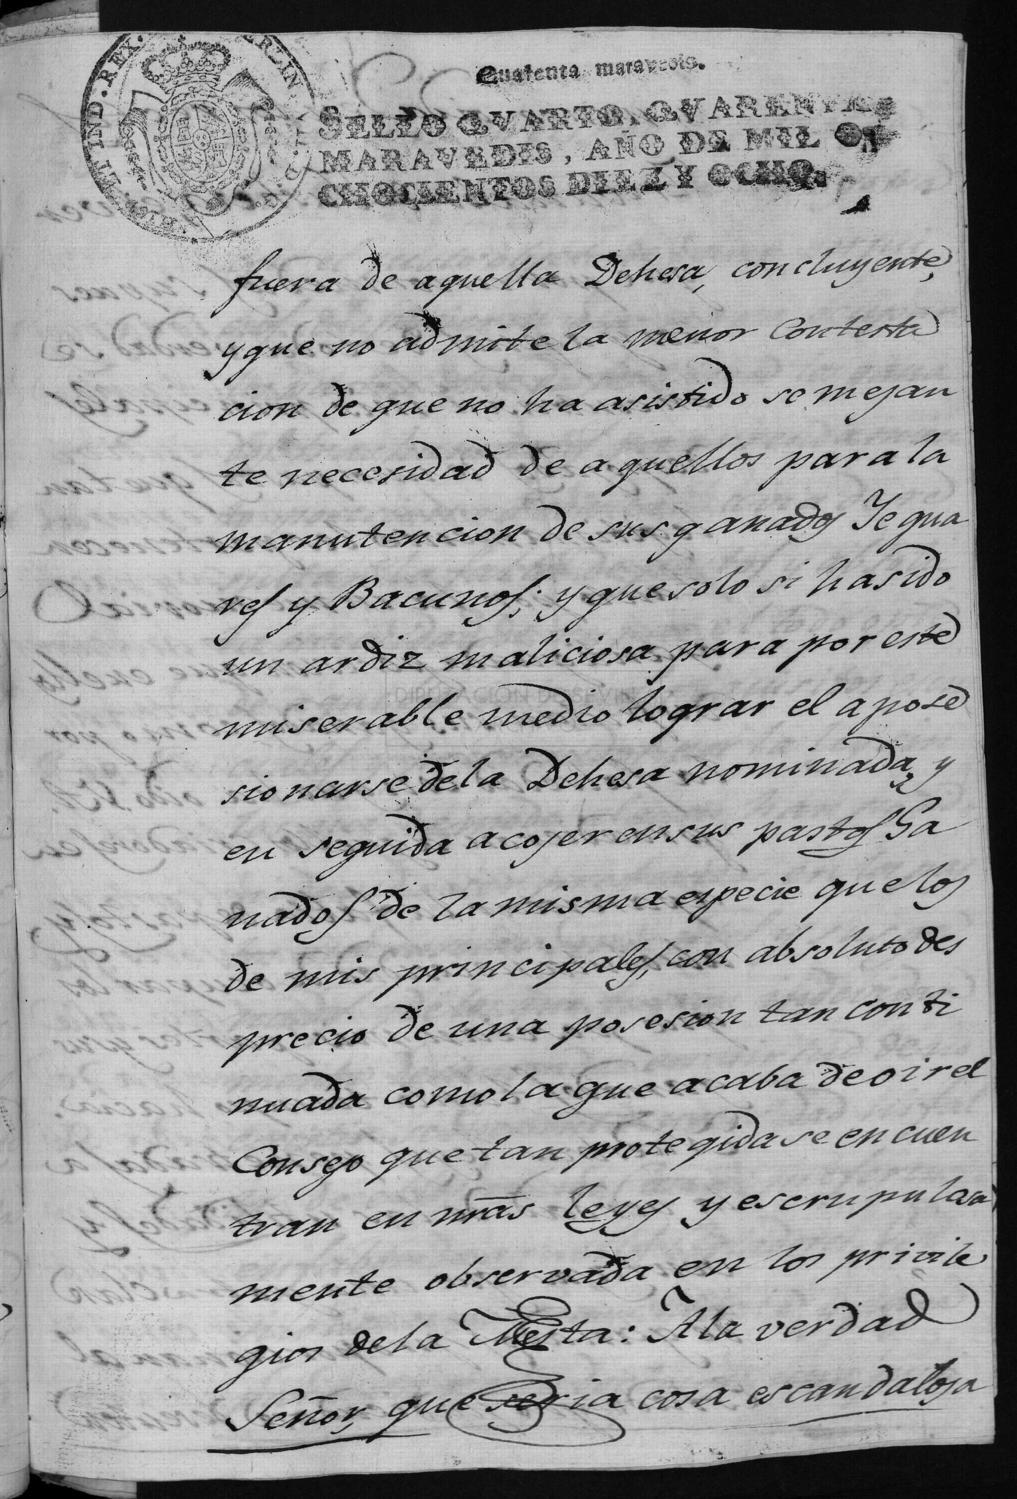 Quarenta maravedis.
SELLO QVARTO, QVARENTA
MARAVEDIS, AÑO DE MIL O-
CHOCIENTOS DIEZ Y OCHO.
fuera de aquella Dehesa, concluyente,
y que no admite la menor Contesta
cion de que no ha asistido semejan
te necesidad de aquellos para la
manutencion de sus ganados Yegua
res y Bacunos; y que solo si ha sido
un ardiz maliciosa para por este
miserable medio lograr el apose
sionarse de la Dehesa nominada, y
en seguida acojer en sus pastos Ga
nados de la misma especie que los
de mis principales, con absoluto des
precio de una posesion tan conti
nuada como la que acaba de oir el
Consejo que tan protegida se encuen
tran en nras leyes y escrupulosa
mente observada en los privile
gios de la Mesta: A la verdad
Señor, que seria cosa escandalosa